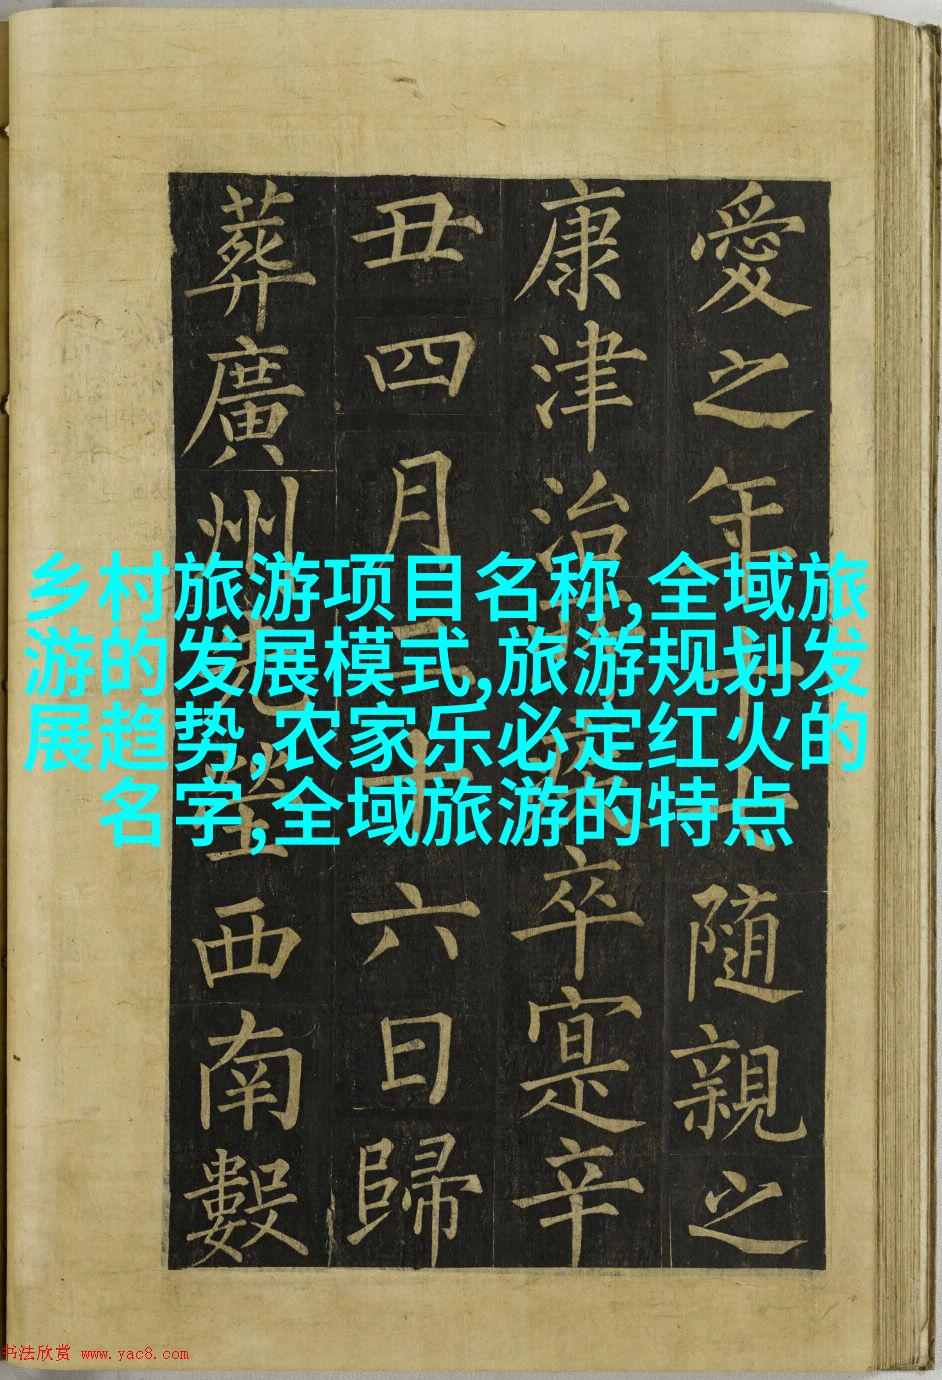 愛之年隨親之
康津治卒寔辛
丑四月二十六日歸
葬廣州塋西南數
乡村旅游项目名称,全域旅
游的发展模式,旅游规划发
展趋势,农家乐必定红火的
名字,全域旅游的特点
书法欣赏 www.yac8.com